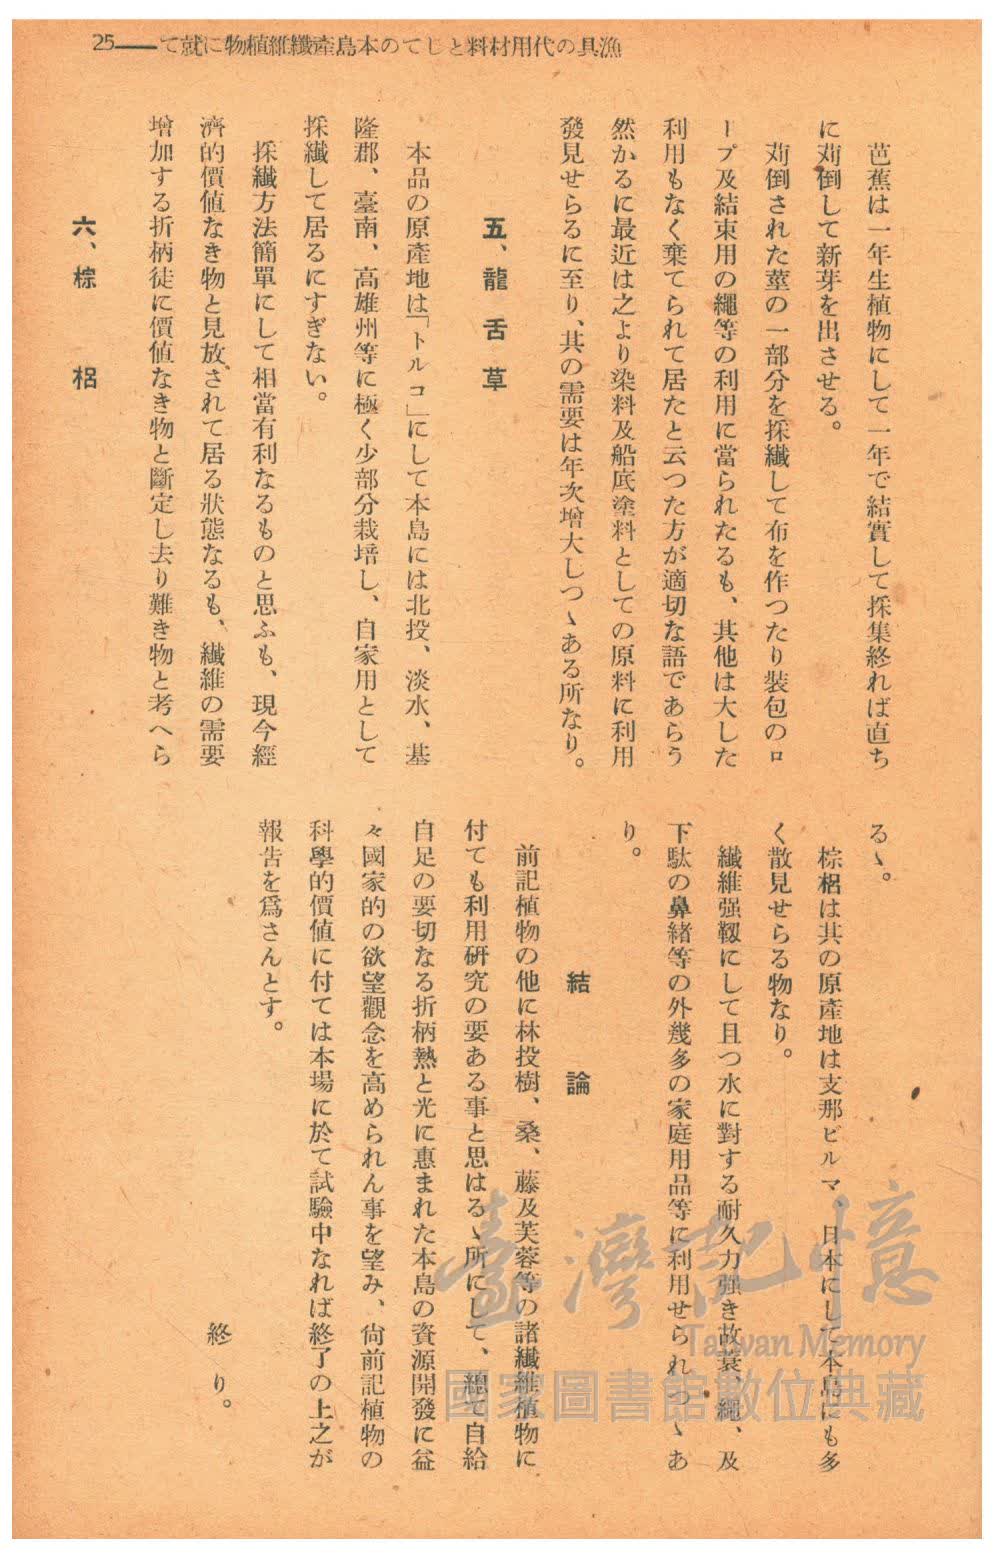 漁具の代用材料としての本島産纖維植物に就て——25
芭蕉は一年生植物にして一年で結實して採集終れば直ち
に苅倒して新芽を出させる。
苅倒された莖の一部分を採纖して布を作つたり裝包のロ
ープ及結束用の繩等の利用に當られたるも、其他は大した
利用もなく棄てられて居たと云つた方が適切な語であらう
然かるに最近は之より染料及船底塗料としての原料に利用
發見せらるに至り、其の需要は年次增大しつゝある所なり。
五、龍舌草
本品の原產地は「トルコ」にして本島には北投、淡水、基
隆郡、臺南、高雄州等に極く少部分栽培し、自家用として
採纖して居るにすぎない。
採纖方法簡單にして相當有利なるものと思ふも、現今經
濟的價値なき物と見放されて居る狀態なるも、纖維の需要
增加する折柄徒に價値なき物と斷定し去り難き物と考へら
六、棕梠
るゝ。
棕梠は其の原產地は支那ビルマ、日本にして本島にも多
く散見せらる物なり。
纖維强靱にして且つ水に對する耐久力强き故蓑、繩、及
下駄の鼻緒等の外幾多の家庭用品等に利用せられつゝあ
り。
結論
前記植物の他に林投樹、桑、藤及芙蓉等の諸纖維植物に
付ても利用硏究の要ある事と思はるゝ所にして、總て自給
自足の要切なる折柄熱と光に惠まれた本島の資源開發に益
々國家的の欲望觀念を高められん事を望み、尙前記植物の
科學的價値に付ては本場に於て試驗中なれば終了の上之が
報告を爲さんとす。
終り。
臺灣記憶
Taiwan Memory
國家圖書館數位典藏